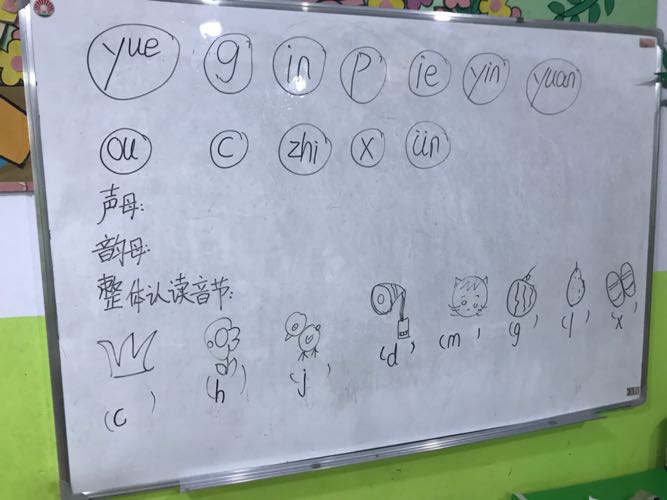 yue g in p ie yin yuan
ou c zhi x ün
声母:
韵母:
整体认读音节:
(c ) (h ) (j ) (d ) (m ) (g ) (l ) (x )